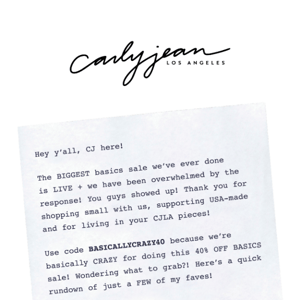 carly jean
LOS ANGELES
Hey y'all, CJ here!
The BIGGEST basics sale we've ever done
is LIVE + we have been overwhelmed by the
response! You guys showed up! Thank you for
shopping small with us, supporting USA-made
and for living in your CJLA pieces!
Use code BASICALLYCRAZY40 because we're
basically CRAZY for doing this 40% OFF BASICS
sale! Wondering what to grab?! Here's a quick
rundown of just a FEW of my faves!